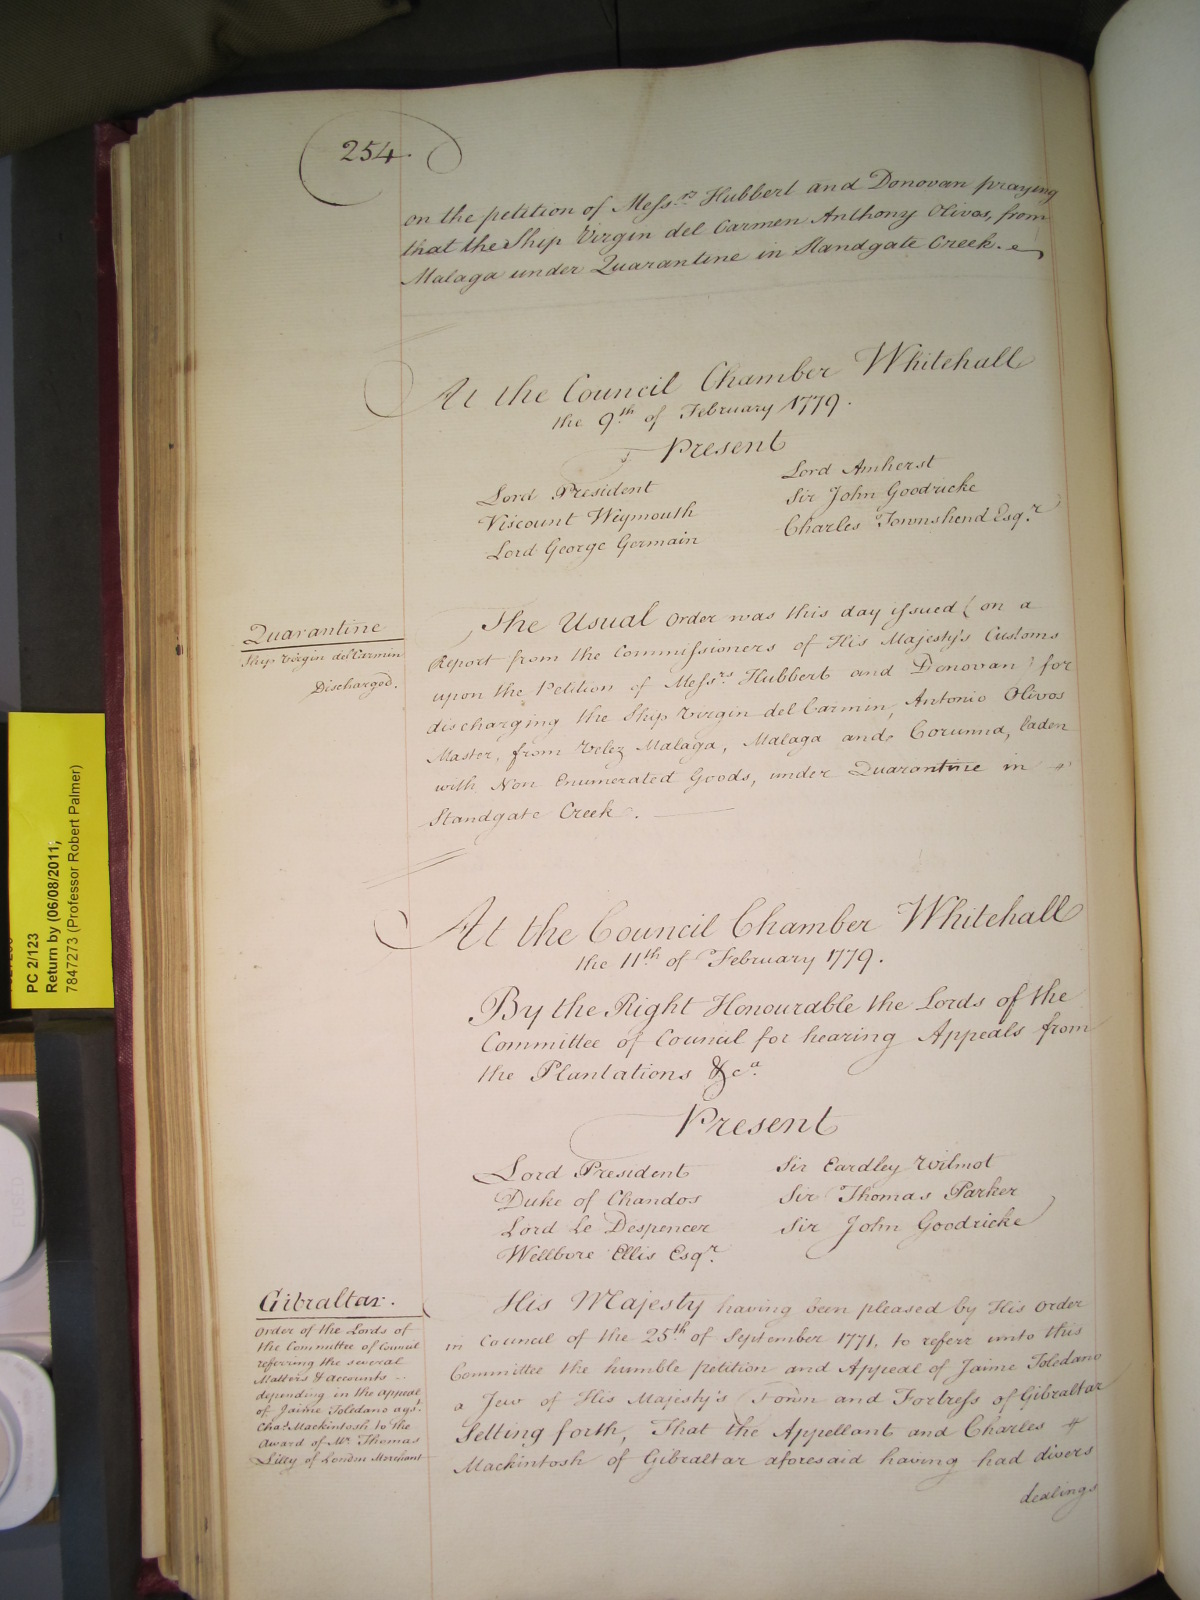 254.
on the petition of Mess.rs Hubbert and Donovan praying
that the Ship Virgin del Carmen Anthony Olivos, from
Malaga under Quarantine in Standgate Creek.
At the Council Chamber Whitehall
the 9.th of February 1779.
Present
Lord President
Viscount Weymouth
Lord George Germain
Lord Amherst
Sir John Goodricke
Charles Townshend Esq.r
Quarantine
Ship Virgin del Carmin
Discharged.
The Usual Order was this day issued (on a
Report from the Commissioners of His Majesty's Customs
upon the Petition of Mess.rs Hubbert and Donovan) for
discharging the Ship Virgin del Carmin, Antonio Olivos
Master, from Velez Malaga, Malaga and Corunna, laden
with Non Enumerated Goods, under Quarantine in
Standgate Creek.
At the Council Chamber Whitehall
the 11.th of February 1779.
By the Right Honourable the Lords of the
Committee of Council for hearing Appeals from
the Plantations &c.a
Present
Lord President
Duke of Chandos
Lord Le Despencer
Wellbore Ellis Esq.r
Sir Eardley Wilmot
Sir Thomas Parker
Sir John Goodricke
Gibraltar.
Order of the Lords of
the Committee of Council
referring the several
Matters & accounts
depending in the appeal
of Jaime Toledano ags.t
Cha.s Mackintosh to the
Award of Mr. Thomas
Lilly of London Merchant
His Majesty having been pleased by His Order
in Council of the 25.th of September 1771, to referr unto this
Committee the humble petition and Appeal of Jaime Toledano
a Jew of His Majesty's Town and Fortress of Gibraltar
Setting forth, That the Appellant and Charles
Mackintosh of Gibraltar aforesaid having had divers
dealings
PC 2/123
Return by (06/08/2011;
7847273 (Professor Robert Palmer)